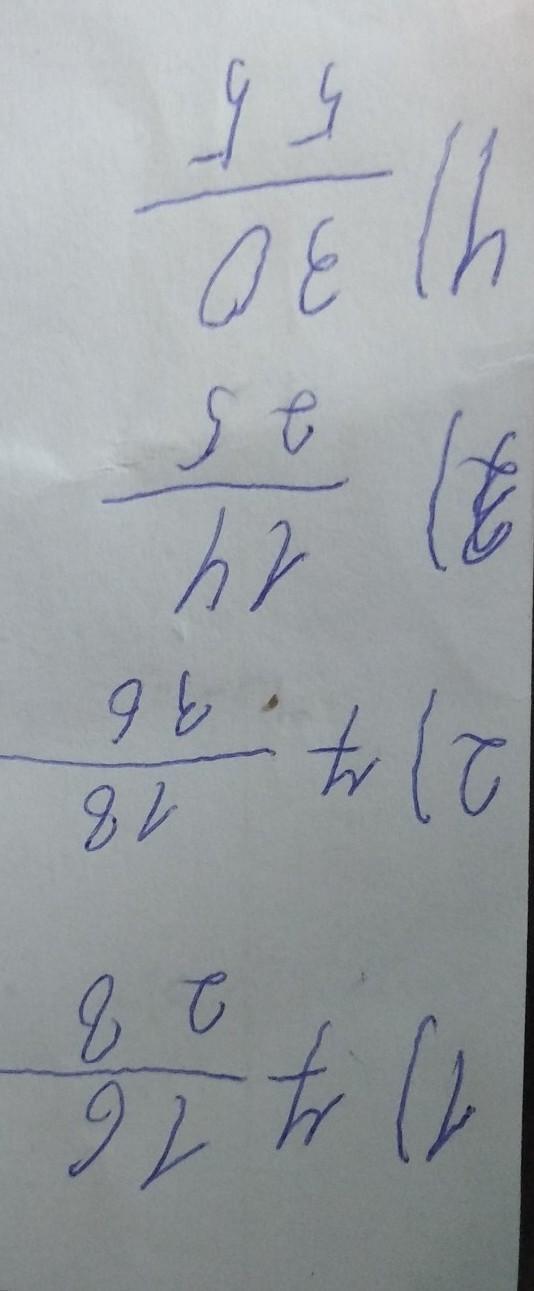 1) 7 16
28
2) 7 18
36
3) 14
25
4) 30
55